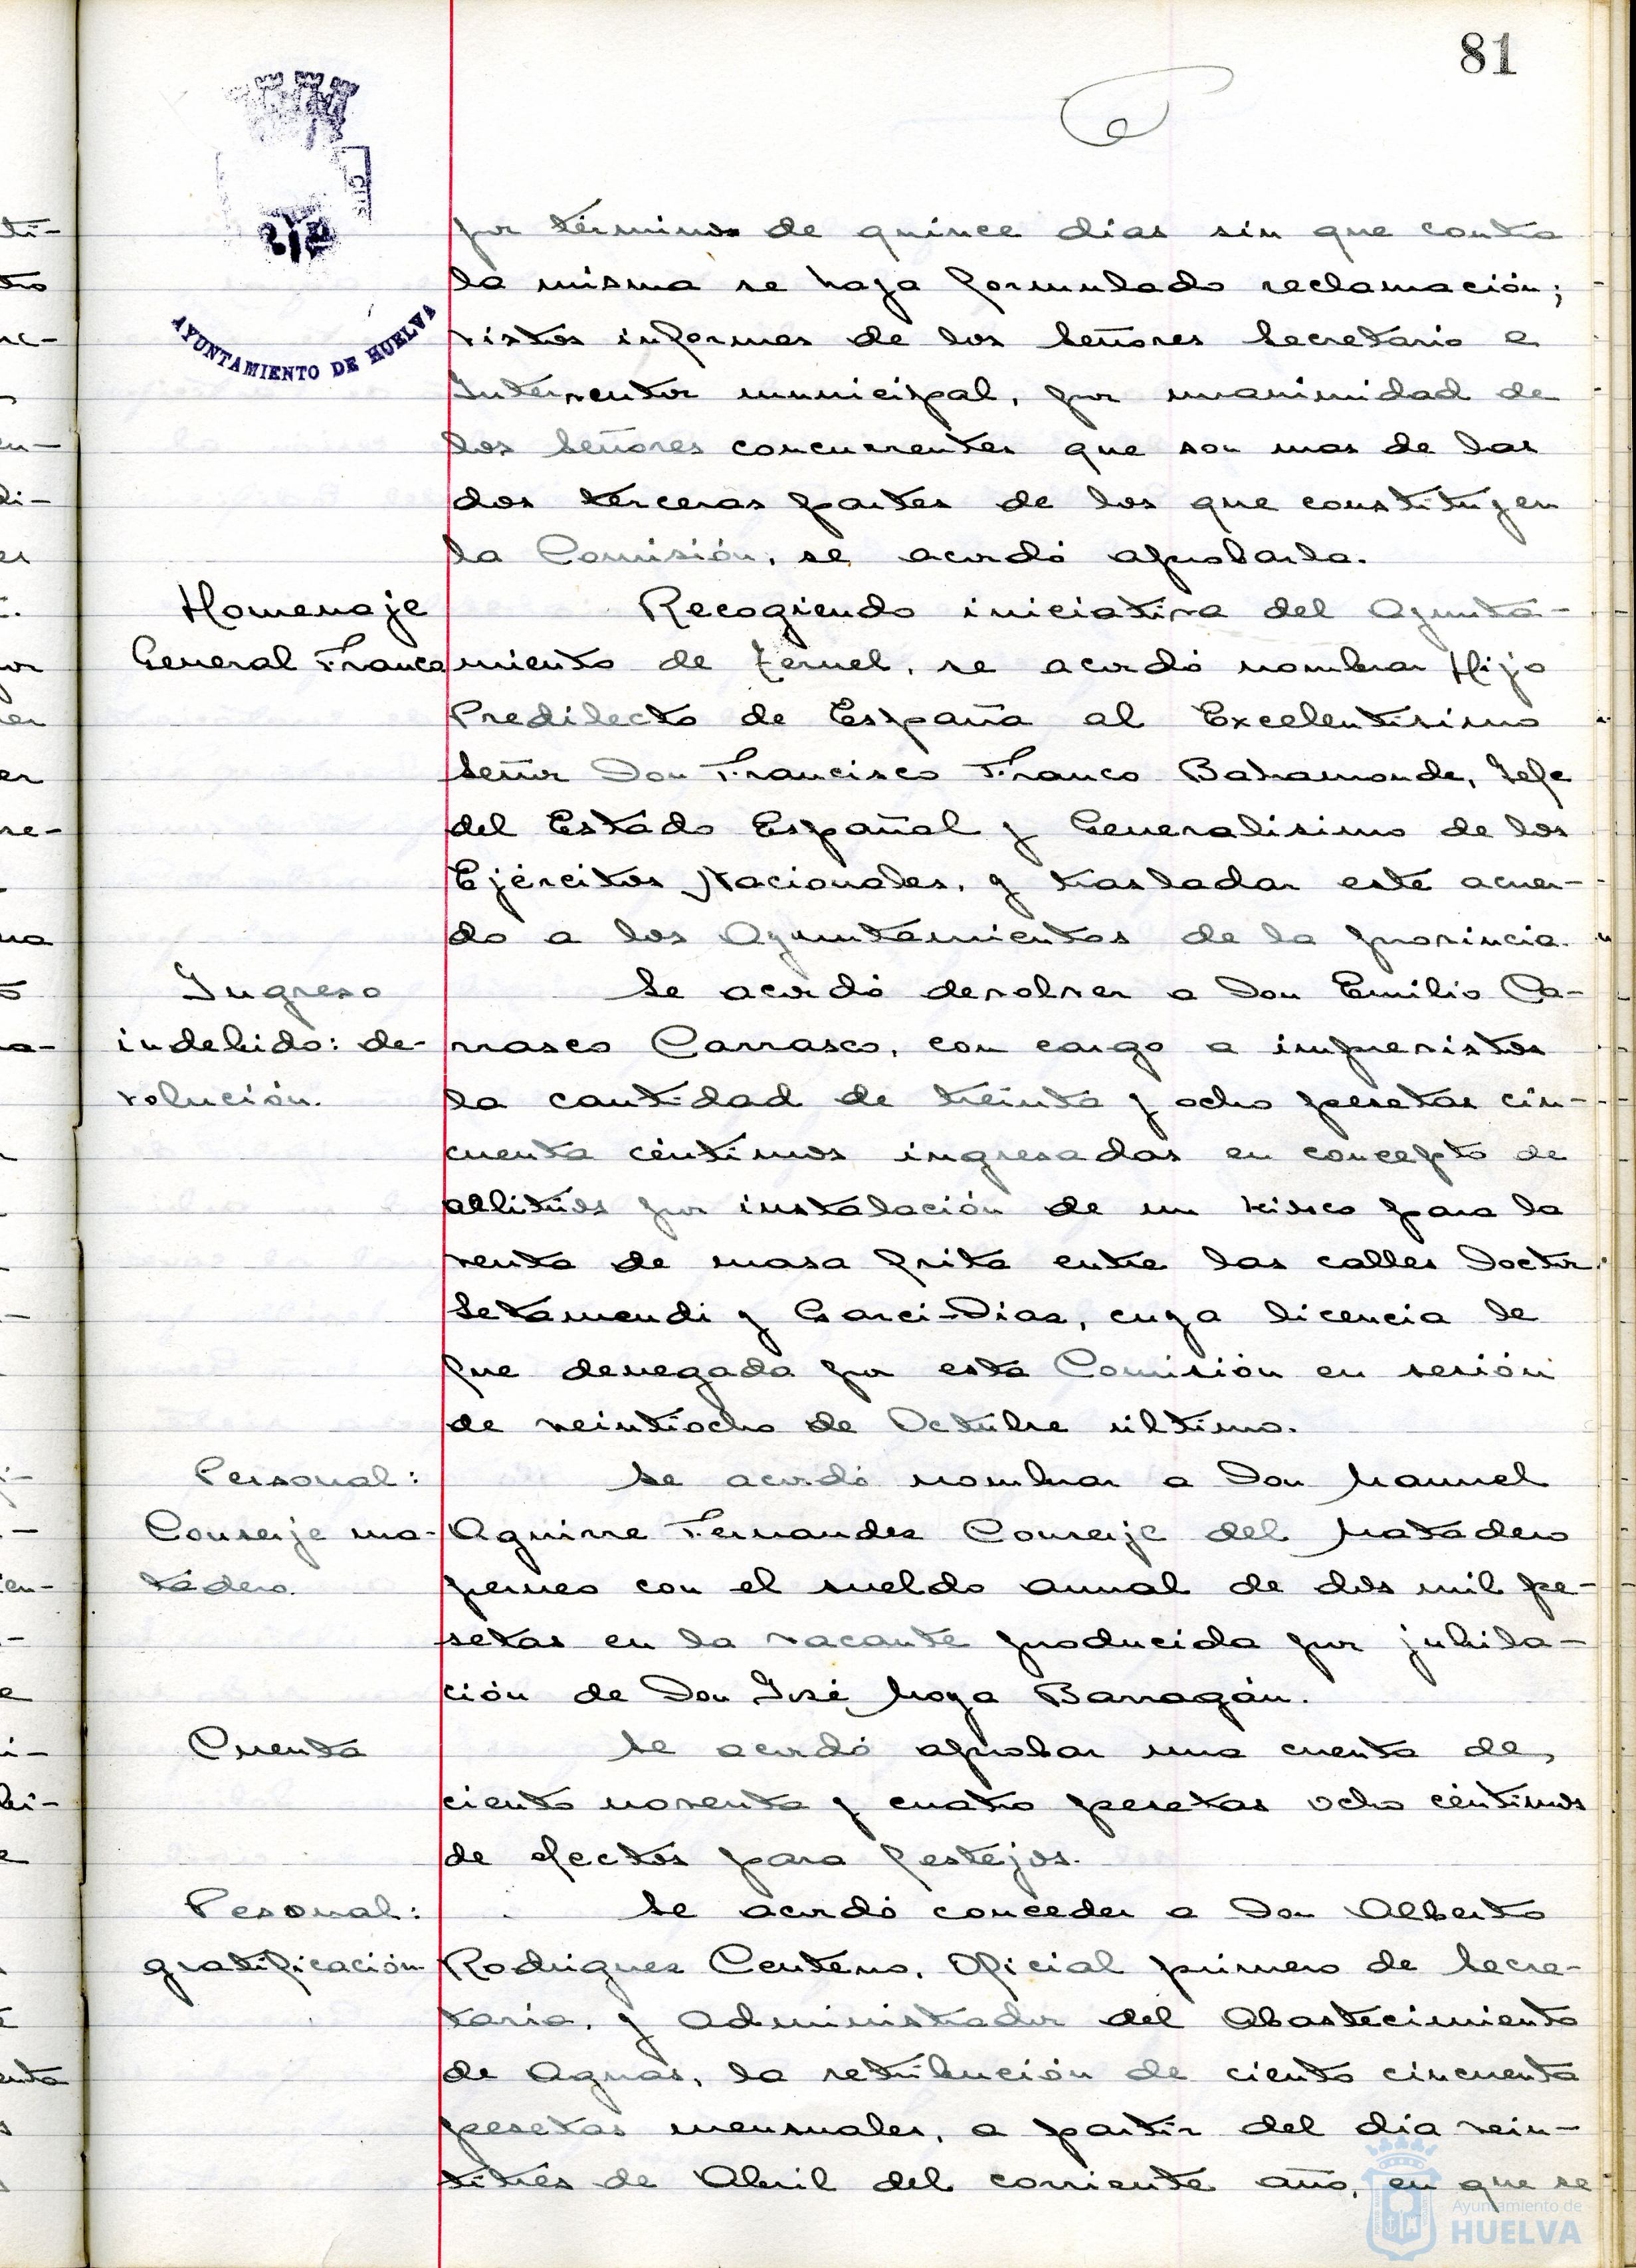 81
AYUNTAMIENTO DE HUELVA
por término de quince dias sin que contra
la misma se haya formulado reclamación;
vistos informes de los Señores Secretario e
Interventor municipal, por unanimidad de
los Señores concurrentes que son mas de las
dos terceras partes de los que constituyen
la Comisión, se acordó aprobarla.
Homenaje
General Franco
Recogiendo iniciativa del Ayunta-
miento de Teruel, se acordó nombrar Hijo
Predilecto de España al Excelentisimo
Señor Don Francisco Franco Bahamonde, Jefe
del Estado Español y Generalisimo de los
Ejércitos Nacionales, y trasladar este acuer-
do a los Ayuntamientos de la provincia.
Ingreso
indebido: de-
volución.
Se acordó devolver a Don Emilio Ca-
rrasco Carrasco, con cargo a imprevistos
la cantidad de treinta y ocho pesetas cin-
cuenta céntimos ingresadas en concepto de
arbitrios por instalación de un kiosco para la
venta de masa frita entre las calles Doctor
Letamendi y Garci-Diaz, cuya licencia le
fue denegada por esta Comisión en sesión
de veintiocho de Octubre último.
Personal:
Conserje ma-
tadero.
Se acordó nombrar a Don Manuel
Aguirre Fernandez Conserje del Matadero
perneo con el sueldo annal de dos mil pe-
setas en la vacante producida por jubila-
ción de Don José Moya Barragán.
Cuenta
Se acordó aprobar una cuenta de,
ciento noventa y cuatro pesetas ocho céntimos
de efectos para festejos.
Pesonal:
gratificación
Se acordó conceder a Don Alberto
Rodriguez Centeno, Oficial primero de Secre-
taria, y Administrador del Abastecimiento
de Aguas, la retribución de ciento cincuenta
pesetas mensuales, a partir del dia vein-
titrés de Abril del corriente año, en que se
Ayuntamiento de
HUELVA